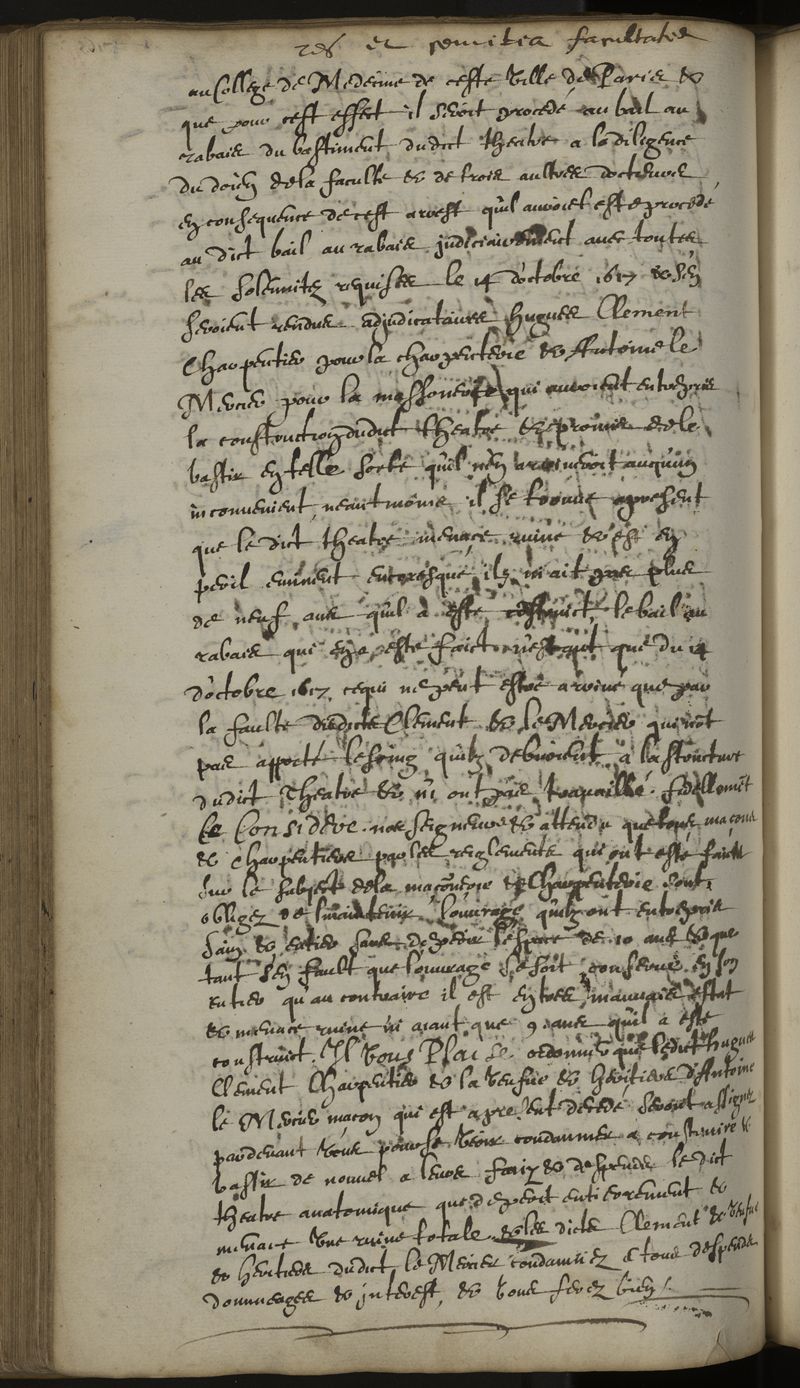 res et comitia facultatis
au College de Medecine de ceste ville de Paris &
que pour cest effect il seroit procedé au bail au
rabais du bastiment dudict theatre a la diligence
du doien de la faculte & de trois aultres docteurs
en consequence de cest arrest qu'il auroiet esté procedé
au dict bail au rabais judiciairement avec toutes
les solennitez requises le 14 d'octobre 1617 & s'en
seroient rendus adjudicataires Hugues Clement
Charpentier pour la charpenterie & Antoine le
Mercier pour la massonerie qui auroient entrepris
la construction dudict theatre & promis de le
bastir en telle sorte qu'il n'en arriveroit aucqun
inconvenient, neantmoins il se trouve apresent
que le dict theatre menace ruine & est en
peril eminent encoresque il n'i ait pas plus
de neuf ans qu'il a esté construict, le bail au
rabais qui en a esté faict n'estant que du 14
d'octobre 1617, cequi ne peut estre arrivé que par
la faulte desdicts Clement & le Mercier qui n'ot
pas apporté le soing qu'ilz debvoient a la structure
dudict Theatre & n'i ont pas travaillé fidellemēt
Ce Consideré nosseigneurs & attendu que tous maçons
& charpentiers par les reiglements qui ont esté faicts
sur le subject de la maçonerie & Charpenterie sont
obligez de maintenir l'ouvrage qu'ilz ont entrepris
sain & entier sans deperir l'espace de 10 ans & que
tant s'en fault que l'ouvrage se soit conservé en son
entier qu'au contraire il est en tres mauvais estat
& menace ruine n'i aiant que 9 ans qu'il a esté
construict. Il Vous Plaise ordonner que ledict Hugues
Clement Charpentier & la veufve & heritiers d'Antoine
le Mercier maçon qui est apresent decedé seront assignez
pardevant vous pour se veoir condamner a construire &
bastir de nouvel a leurs fraiz & despends le dict
theatre anatomique que deperit entierement &
menace une ruine totale & les dicts Clement & veufve
& heritiers dudict le Mercier condamnez e tous despends
dommages & interest, & vous ferez bien.